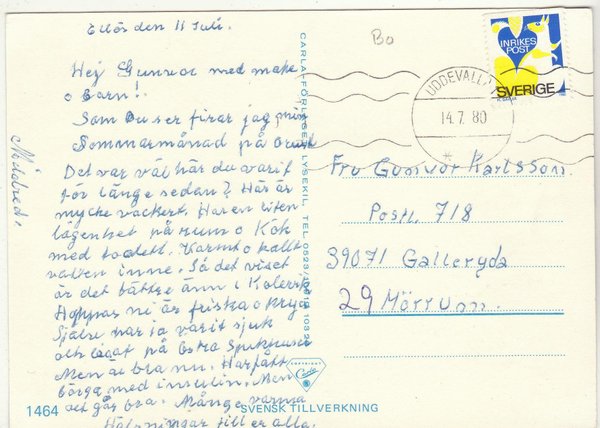 Ellös den 11 Juli.
Hej Gunvor med make
o Barn!
Som Du ser firar jag min
Sommarmånad på Orust
Det var väl här du varit
för länge sedan? Här är
mycke vackert. Har en liten
lägenhet på rum o Kök
med toalett. Varmt o kallt
vatten inne. Så det viset
är det bättre änn i
Hoppas ni är friska o Krya
Själv har ja varit sjuk
och legat på Östra Sjukhuset
Men är bra nu. Har fått
börja med insulin. Men
det går bra. Många varma
Hälsningar till er alla.
Mildred.
1464
SVENSK TILLVERKNING
CARLA-FÖRLAGET, LYSEKIL, TEL. 0523/
Carla
Bo
INRIKES
POST
SVERIGE
UDDEVALLA
14.7.80
Fru Gunvor Karlsson.
Postl. 718
39071 Galleryda
29 Mörrum.